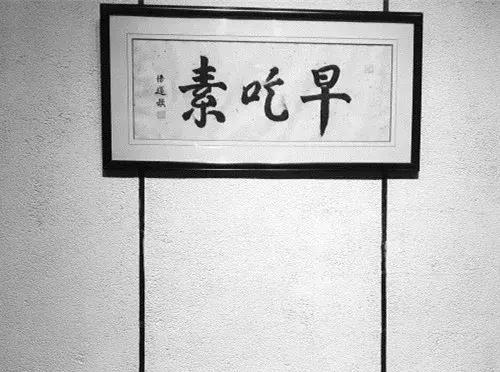 早吃素